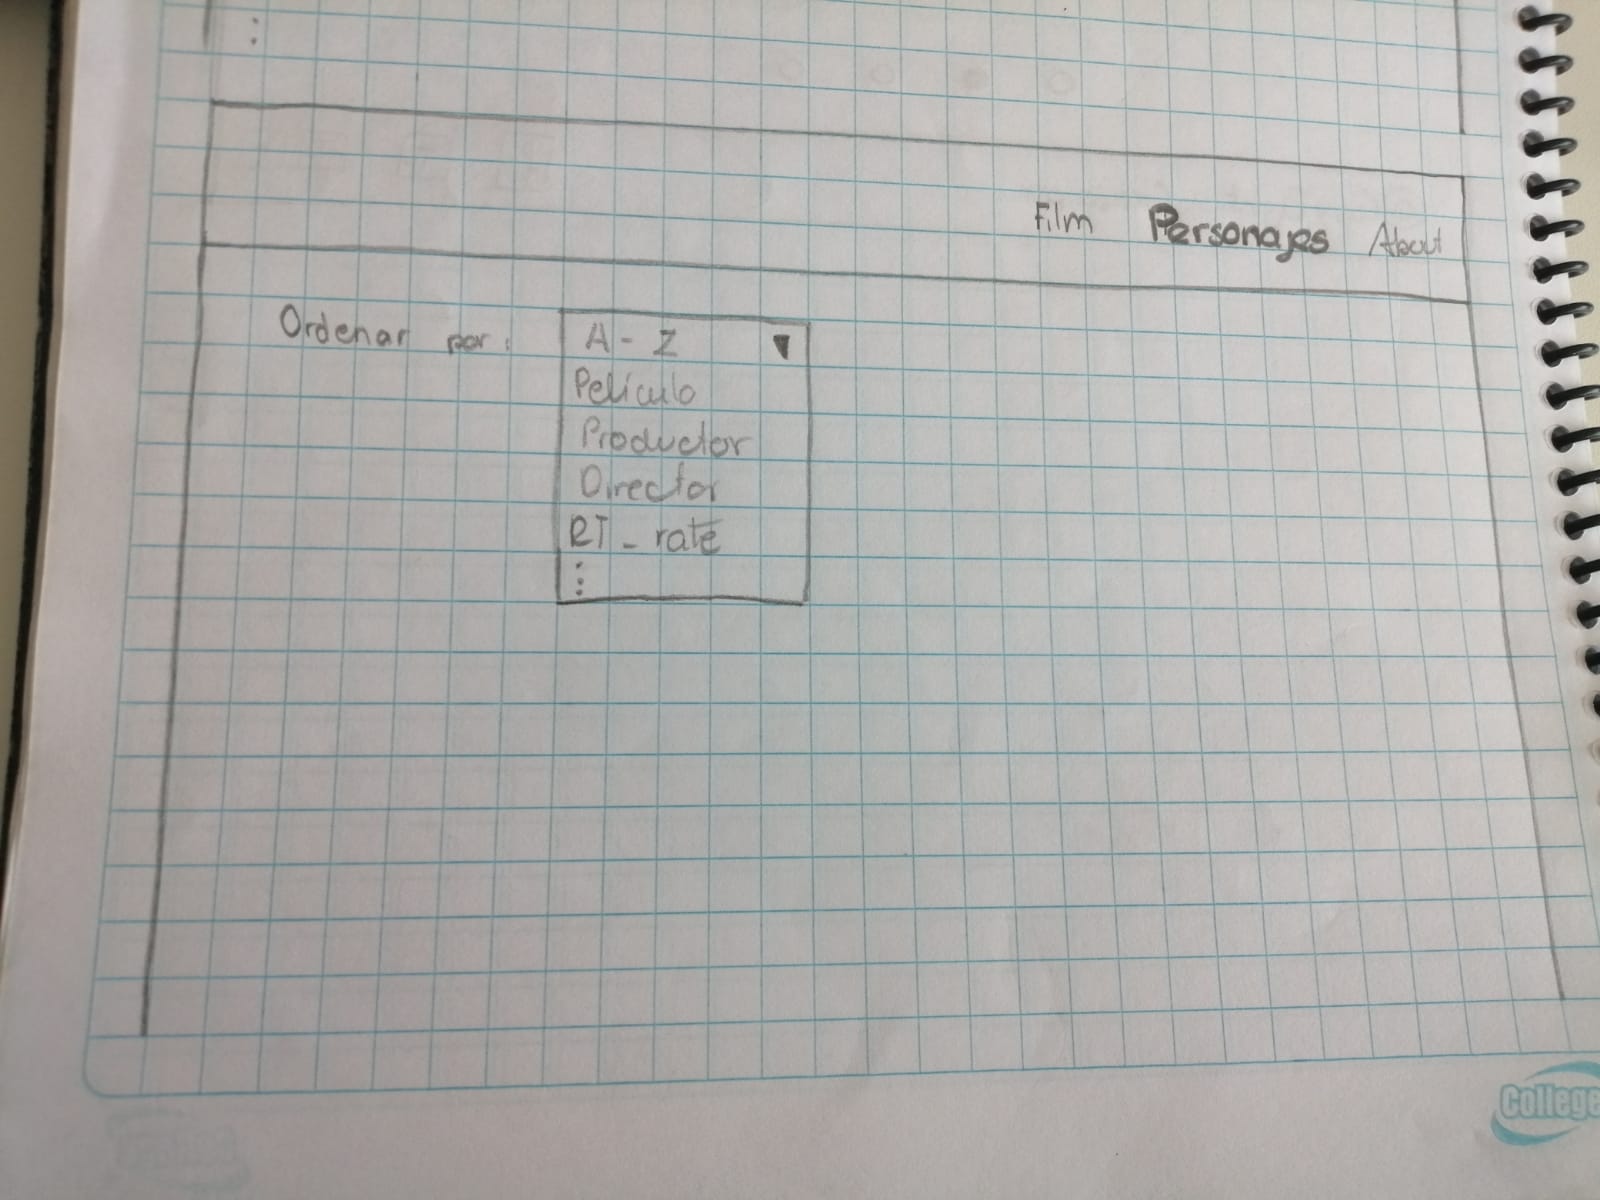 Film Personajes About
Ordenar por:
A - Z
Película
Productor
Director
RT_rate
College